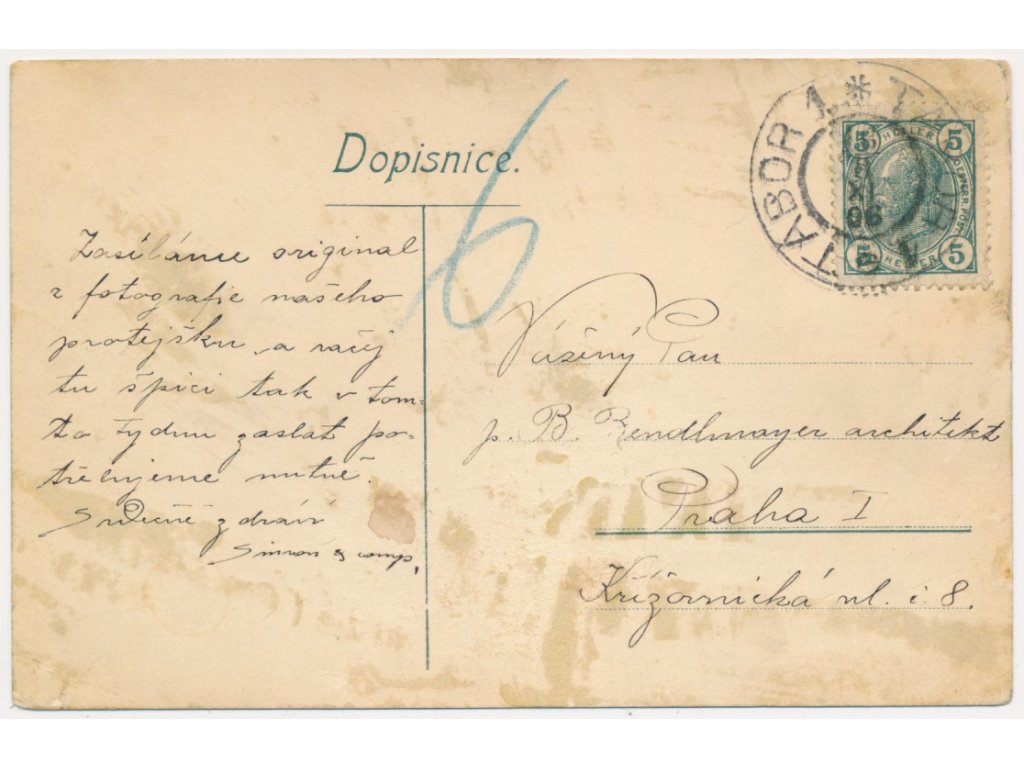 Dopisnice.
6
TÁBOR 1 * TÁBOR 1
06
5 HELLER 5
5 HELLER 5
Zasíláme original
z fotografie našeho
protějšku, a račej
tu špici tak v tom-
to týdnu zaslat po-
třebujeme nutně.
Srdečně zdráv
Simon & comp.
Vážený Pan
p. B. Bendlmayer architekt
Praha I
Křižovnická ul. č 8.